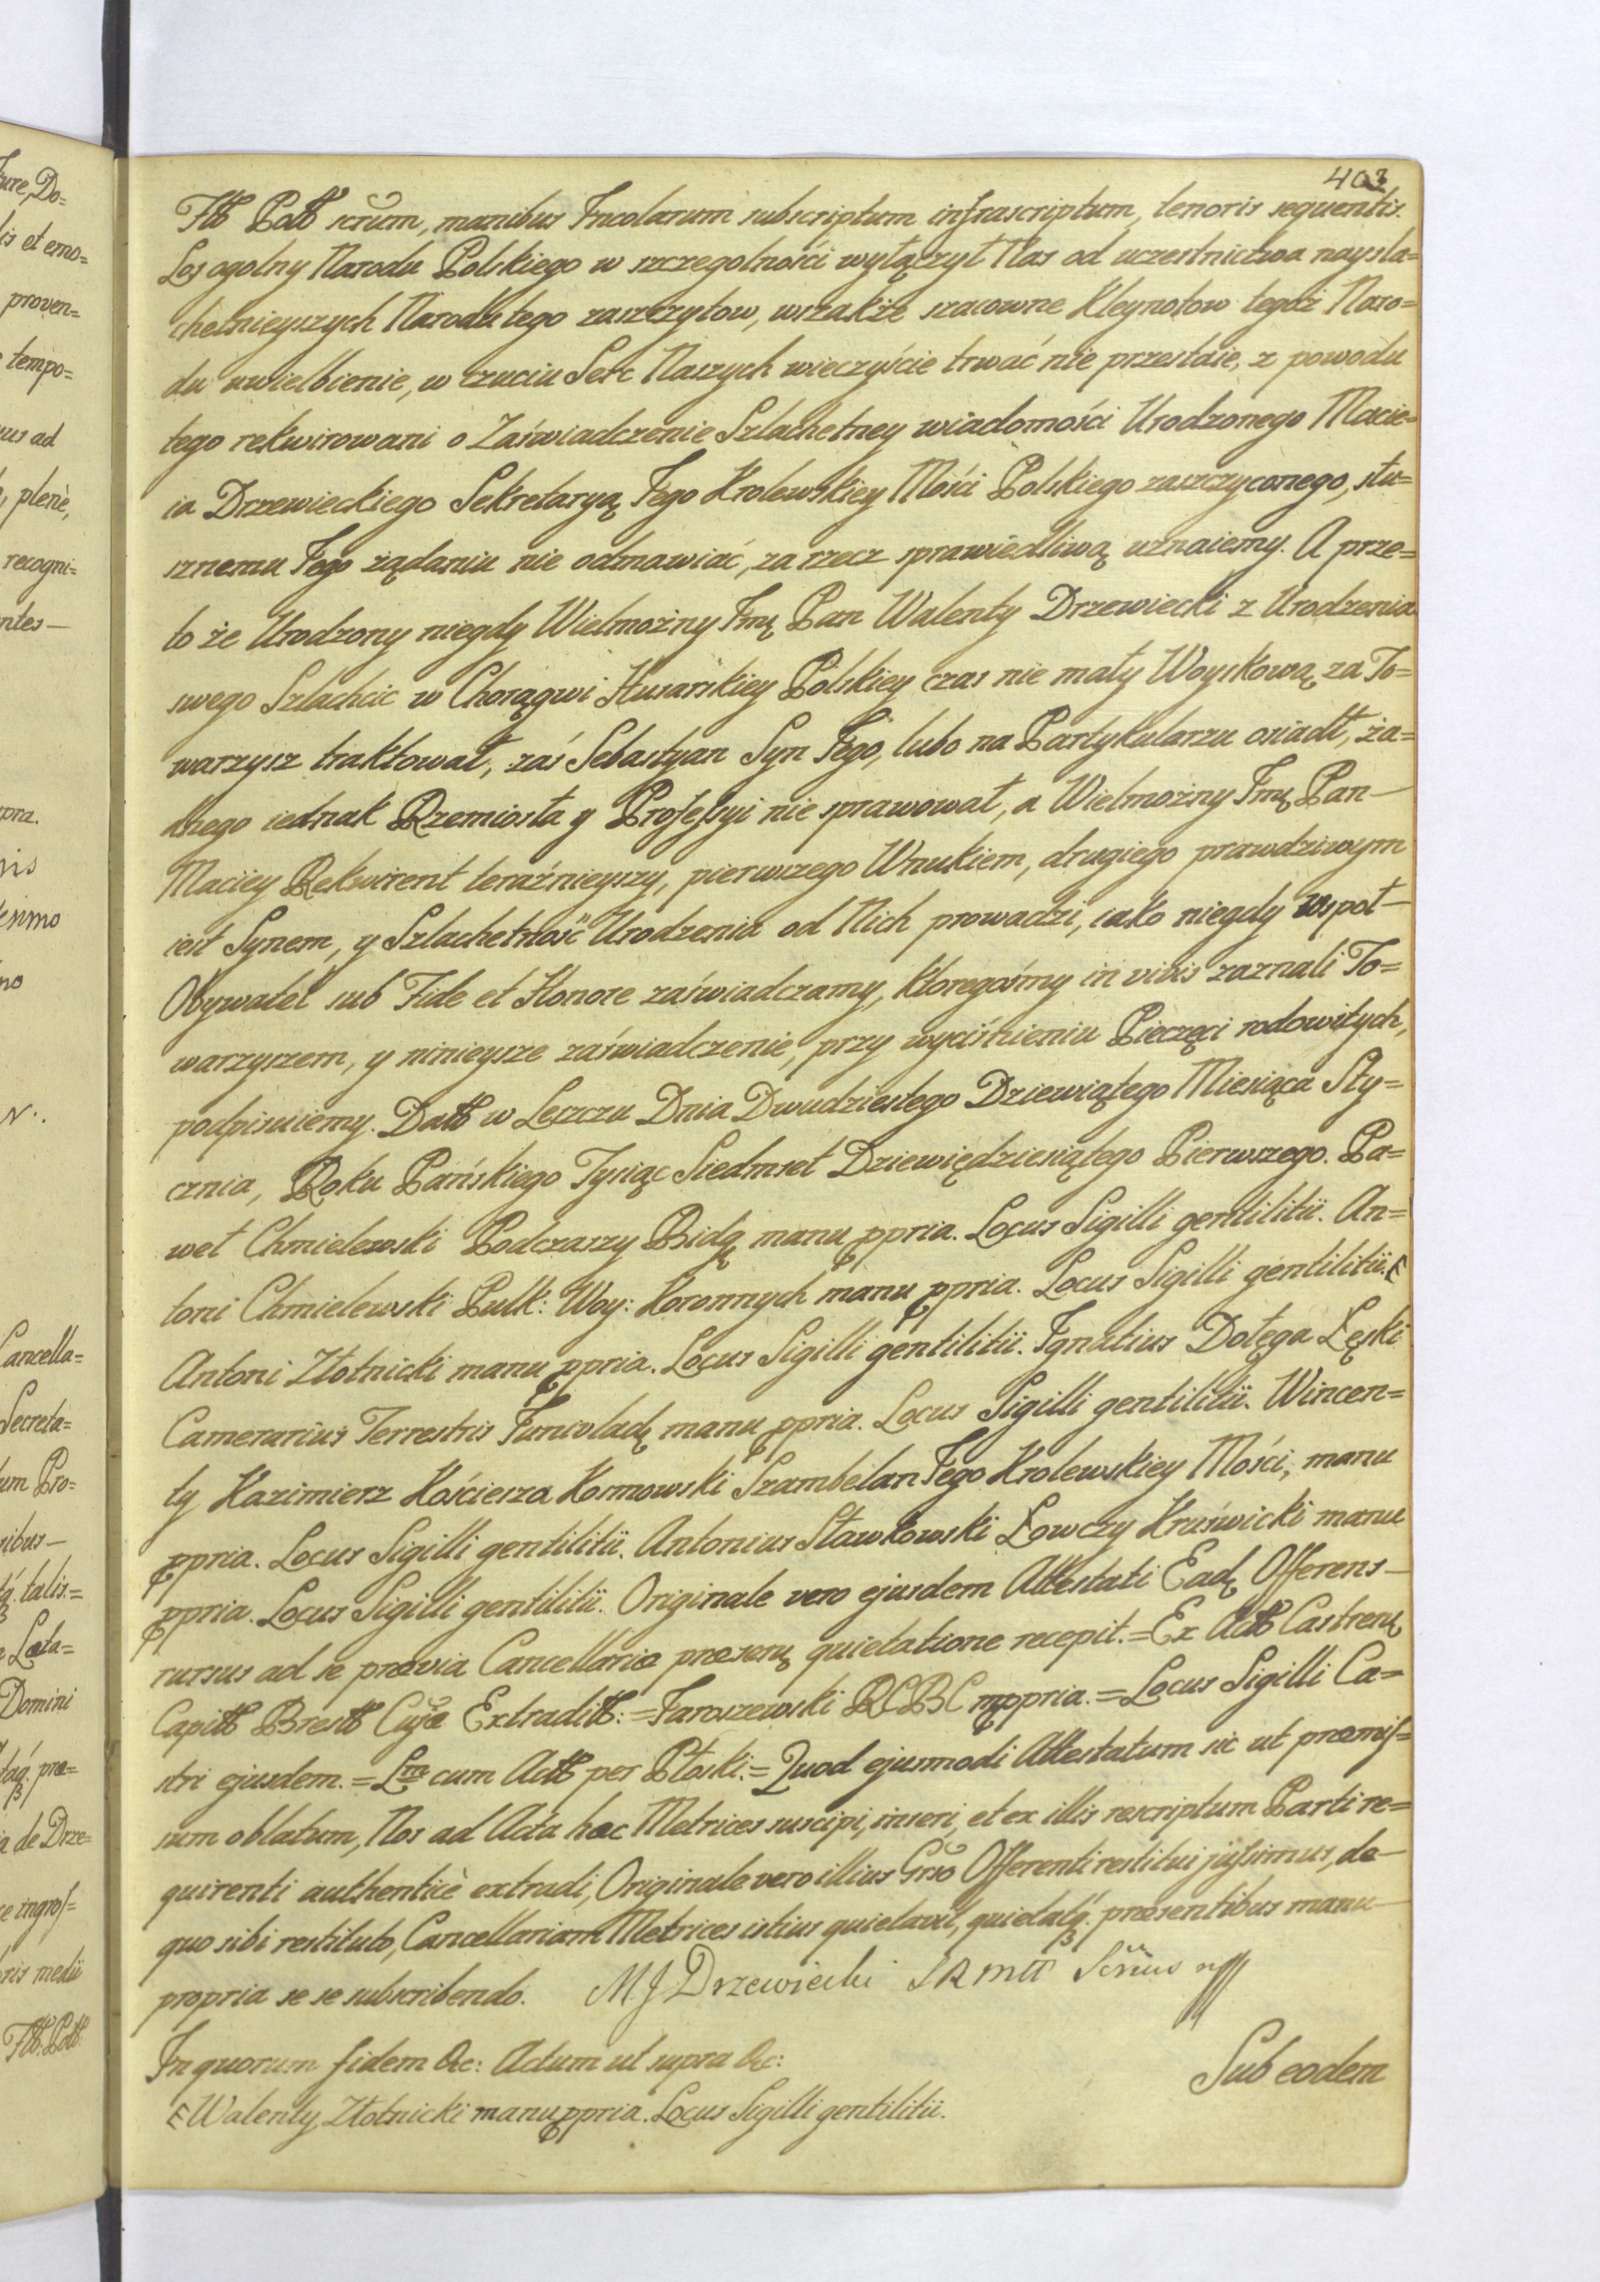 403
scrum, manibus Incolarum subscriptum infrascriptum, tenoris sequentis.
Los ogolny Narodu Polskiego w szczegolności wyłączył Nas od uczestnictwa naysla=
chetnieyszych Narodu tego zaszczytow, wszakże szacowne Kleynotow tegoż Naro=
du uwielbienie, w czuciu Serc Naszych wieczyście trwać nie przestaie, z powodu
tego rekwirowani o Zaświadczenie Szlachetney wiadomości Urodzonego Macie=
ia Drzewieckiego Sekretaryą Jego Krolewskiey Mości Polskiego zaszczyconego, słu=
sznemu Jego żądaniu nie odmawiać, za rzecz sprawiedliwą uznaiemy. A prze=
to że Urodzony niegdy Wielmożny Jmę Pan Walenty Drzewiecki z Urodzenia
swego Szlachcic w Chorągwi Husarskiey Polskiey czas nie mały Woyskową za To=
warzysz traktował, zaś Sebastyan Syn Jego, lubo na Partykularzu osiadł, ża=
dnego iednak Rzemiosła y Professyi nie sprawował, a Wielmożny Jmę Pan—
Maciey Rekwirent teraźnieyszy, pierwszego Wnukiem, drugiego prawdziwym
iest Synem, y Szlachetność Urodzenia od Nich prowadzi, iako niegdy wspoł—
Obywatel sub Fide et Honore zaświadczamy, ktoregośmy in vivis zaznali To=
warzyszem, y ninieysze zaświadczenie, przy wyciśnieniu Pieczęci rodowitych,
podpisuiemy. Datt w Leszczu Dnia Dwudziestego Dziewiątego Miesiąca Sty=
cznia, Roku Pańskiego Tysiąc Siedmset Dziewiędziesiątego Pierwszego. Pa=
weł Chmielewski Podczaszy Bidg manu ppria. Locus Sigilli gentilitii. An=
toni Chmielewski Pułk: Woy: Koronnych manu ppria. Locus Sigilli gentilitii.
Antoni Złotnicki manu ppria. Locus Sigilli gentilitii. Ignatius Dołęga Łęski
Camerarius Terrestris Junivladę manu ppria. Locus Sigilli gentilitii. Wincen=
ty Kazimierz Kościesza Kosmowski Szambelan Jego Krolewskiey Mości, manu
ppria. Locus Sigilli gentilitii. Antonius Sławkowski Łowczy Kruświcki manu
ppria. Locus Sigilli gentilitii. Originale vero ejusdem Attestati Eadę Offerens—
rursus ad se prævia Cancellariæ præsenę quietatione recepit.=Ex Actt Castrenę
Capitt Brestt Cujæ Extraditt:=Jaroszewski RCBC mppria.=Locus Sigilli Ca=
stri ejusdem.= cum Actt per Płoski:=Quod ejusmodi Attestatum sic ut præmis=
sum oblatum, Nos ad Acta hæc Metrices suscipi, inseri, et ex illis rescriptum Parti re=
quirenti authenticè extradi, Originale vero illius Gnso Offerenti restitui jussimus, de—
quo sibi restituto, Cancellariam Metrices istius quietavit, quietatq. præsentibus manu—
propria se se subscribendo. MJ Drzewiecki
In quorum fidem &c: Actum ut supra &c:
Sub eodem
Walenty Złotnicki manu ppria. Locus Sigilli gentilitii.